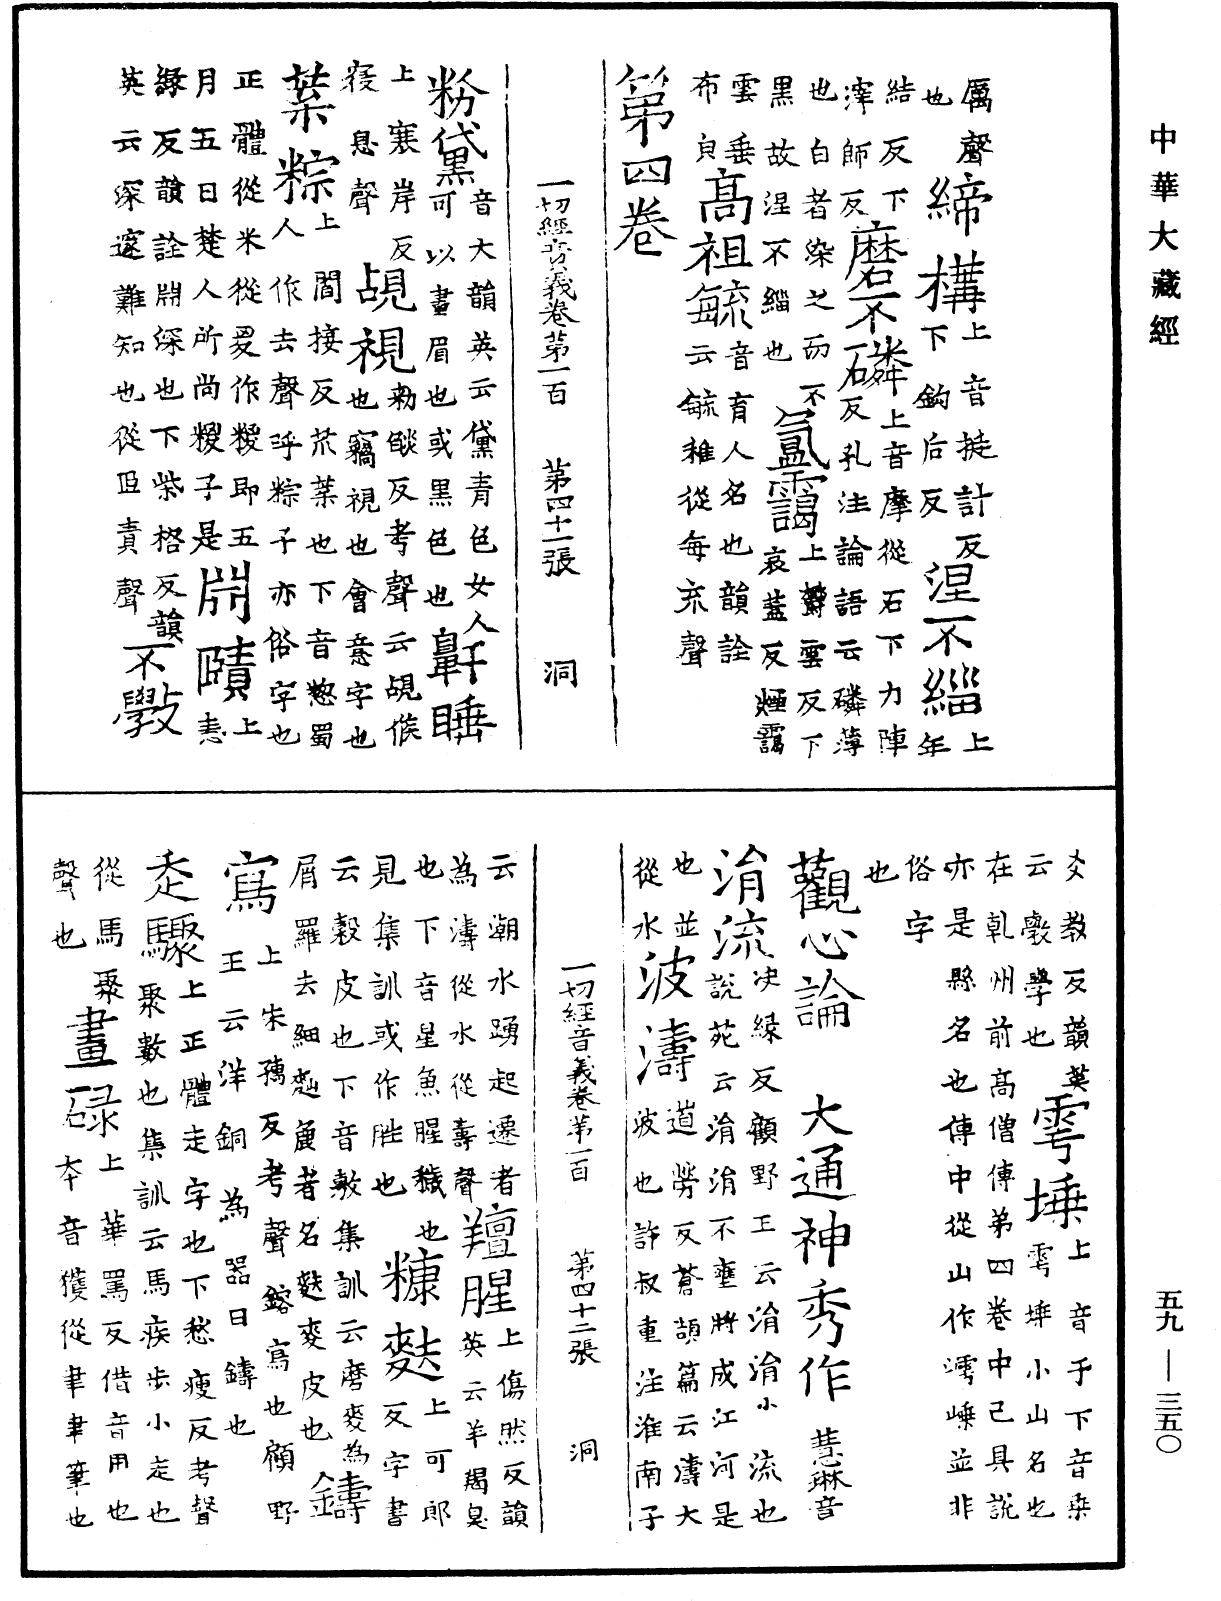 中華大藏經
厲聲也 締構 上音提計反下鈎后反 涅不緇 上年
結反下滓師反 磨不磷 上音摩從石下力陣反孔注論語云磷薄
也白者染之而不黑故涅不緇也 氳靄 上鬱雲反下哀蓋反煙靄
雲垂布皃 高祖毓 音育人名也韻詮云毓稚從每㐬聲
第四卷
一切經音義卷第一百 第四十一張 洞
粉黛 音大韻英云黛青色女人可以畫眉也或黑色也 鼾睡
上寒岸反寑息聲 覘視 上勑燄反考聲云覘候也竊視也會意字也
葉粽 上閻接反荒葉也下音㹅蜀人作去聲呼粽子亦俗字也
正體從米從㚇作糉即五月五日楚人所尚糉子是 淵賾 上恚
緣反韻詮淵深也下柴格反韻英云深邃難知也從𦣞責聲 不斆
爻教反韻英云斆學也 雩埵 上音于下音朶雩埵小山名也
在乹州前高僧傳第四卷中已具說亦是縣名也傳中從山作並非
俗字也
觀心論 大通神秀作 慧琳音
涓流 决緣反顧野王云涓涓小流也說苑云涓涓不壅將成江河是
也並從水 波濤 道勞反蒼頡篇云濤大波也許叔重注淮南子
一切經音義卷第一百 第四十二張 洞
云潮水踴起還者為濤從水從壽聲 羶腥 上傷然反韻英云羊羯臭
也下音星魚腥穢也見集訓或作胜也 糠麩 上可郎反字書
云穀皮也下音敷集訓云磨麥為屑羅去細麪麁者名麩麥皮也 鑄
寫 上朱孺反考聲鎔寫也顧野王云洋銅為器曰鑄也
走驟 上正體走字也下愁瘦反考聲聚數也集訓云馬疾步小走也
從馬聚聲也 畫碌 上華罵反借音用也本音獲從聿聿筆也
五九—三五〇